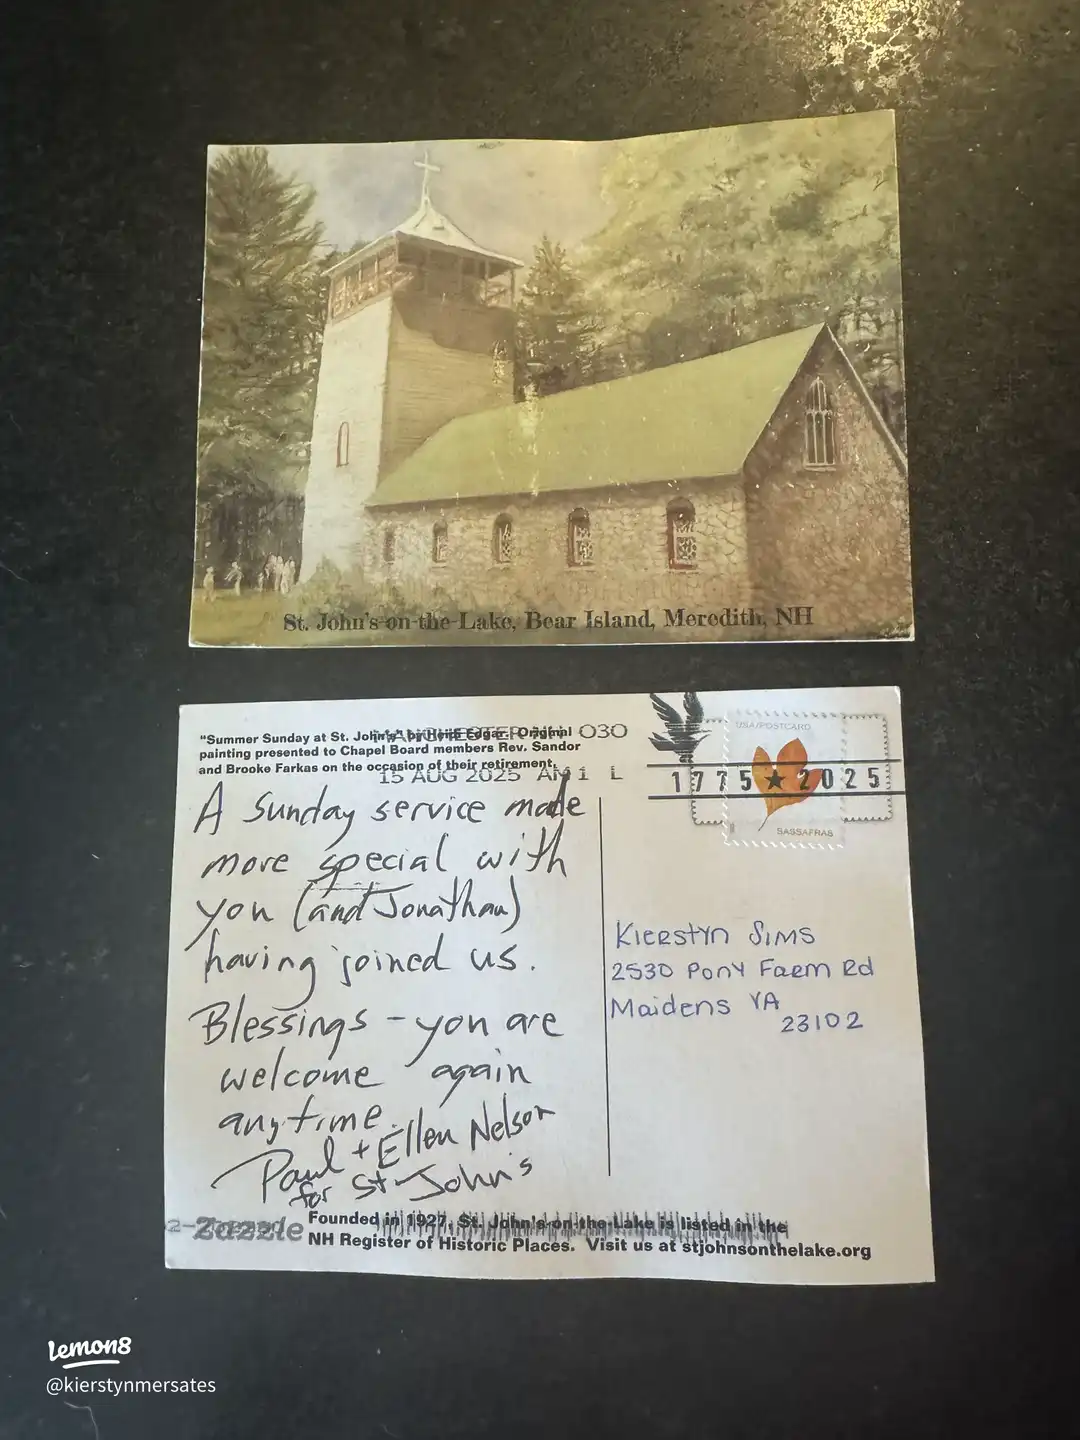 St. John's-on-the-Lake, Bear Island, Meredith, NH
"Summer Sunday at St. John's" by Edgar. Original
painting presented to Chapel Board members Rev. Sandor
and Brooke Farkas on the occasion of their retirement.
MANCHESTER NH 030
15 AUG 2025 AM 1 L
USA/POSTCARD
1775 ★ 2025
SASSAFRAS
A Sunday service made
more special with
you (and Jonathan)
having joined us.
Blessings - you are
welcome again
anytime.
Paul + Ellen Nelson
for St John's
Kierstyn Sims
2530 Pony Farm Rd
Maidens VA
23102
Zazzle
Founded in 1927, St. John's-on-the-Lake is listed in the
NH Register of Historic Places. Visit us at stjohnsonthelake.org
lemon8
@kierstynmersates